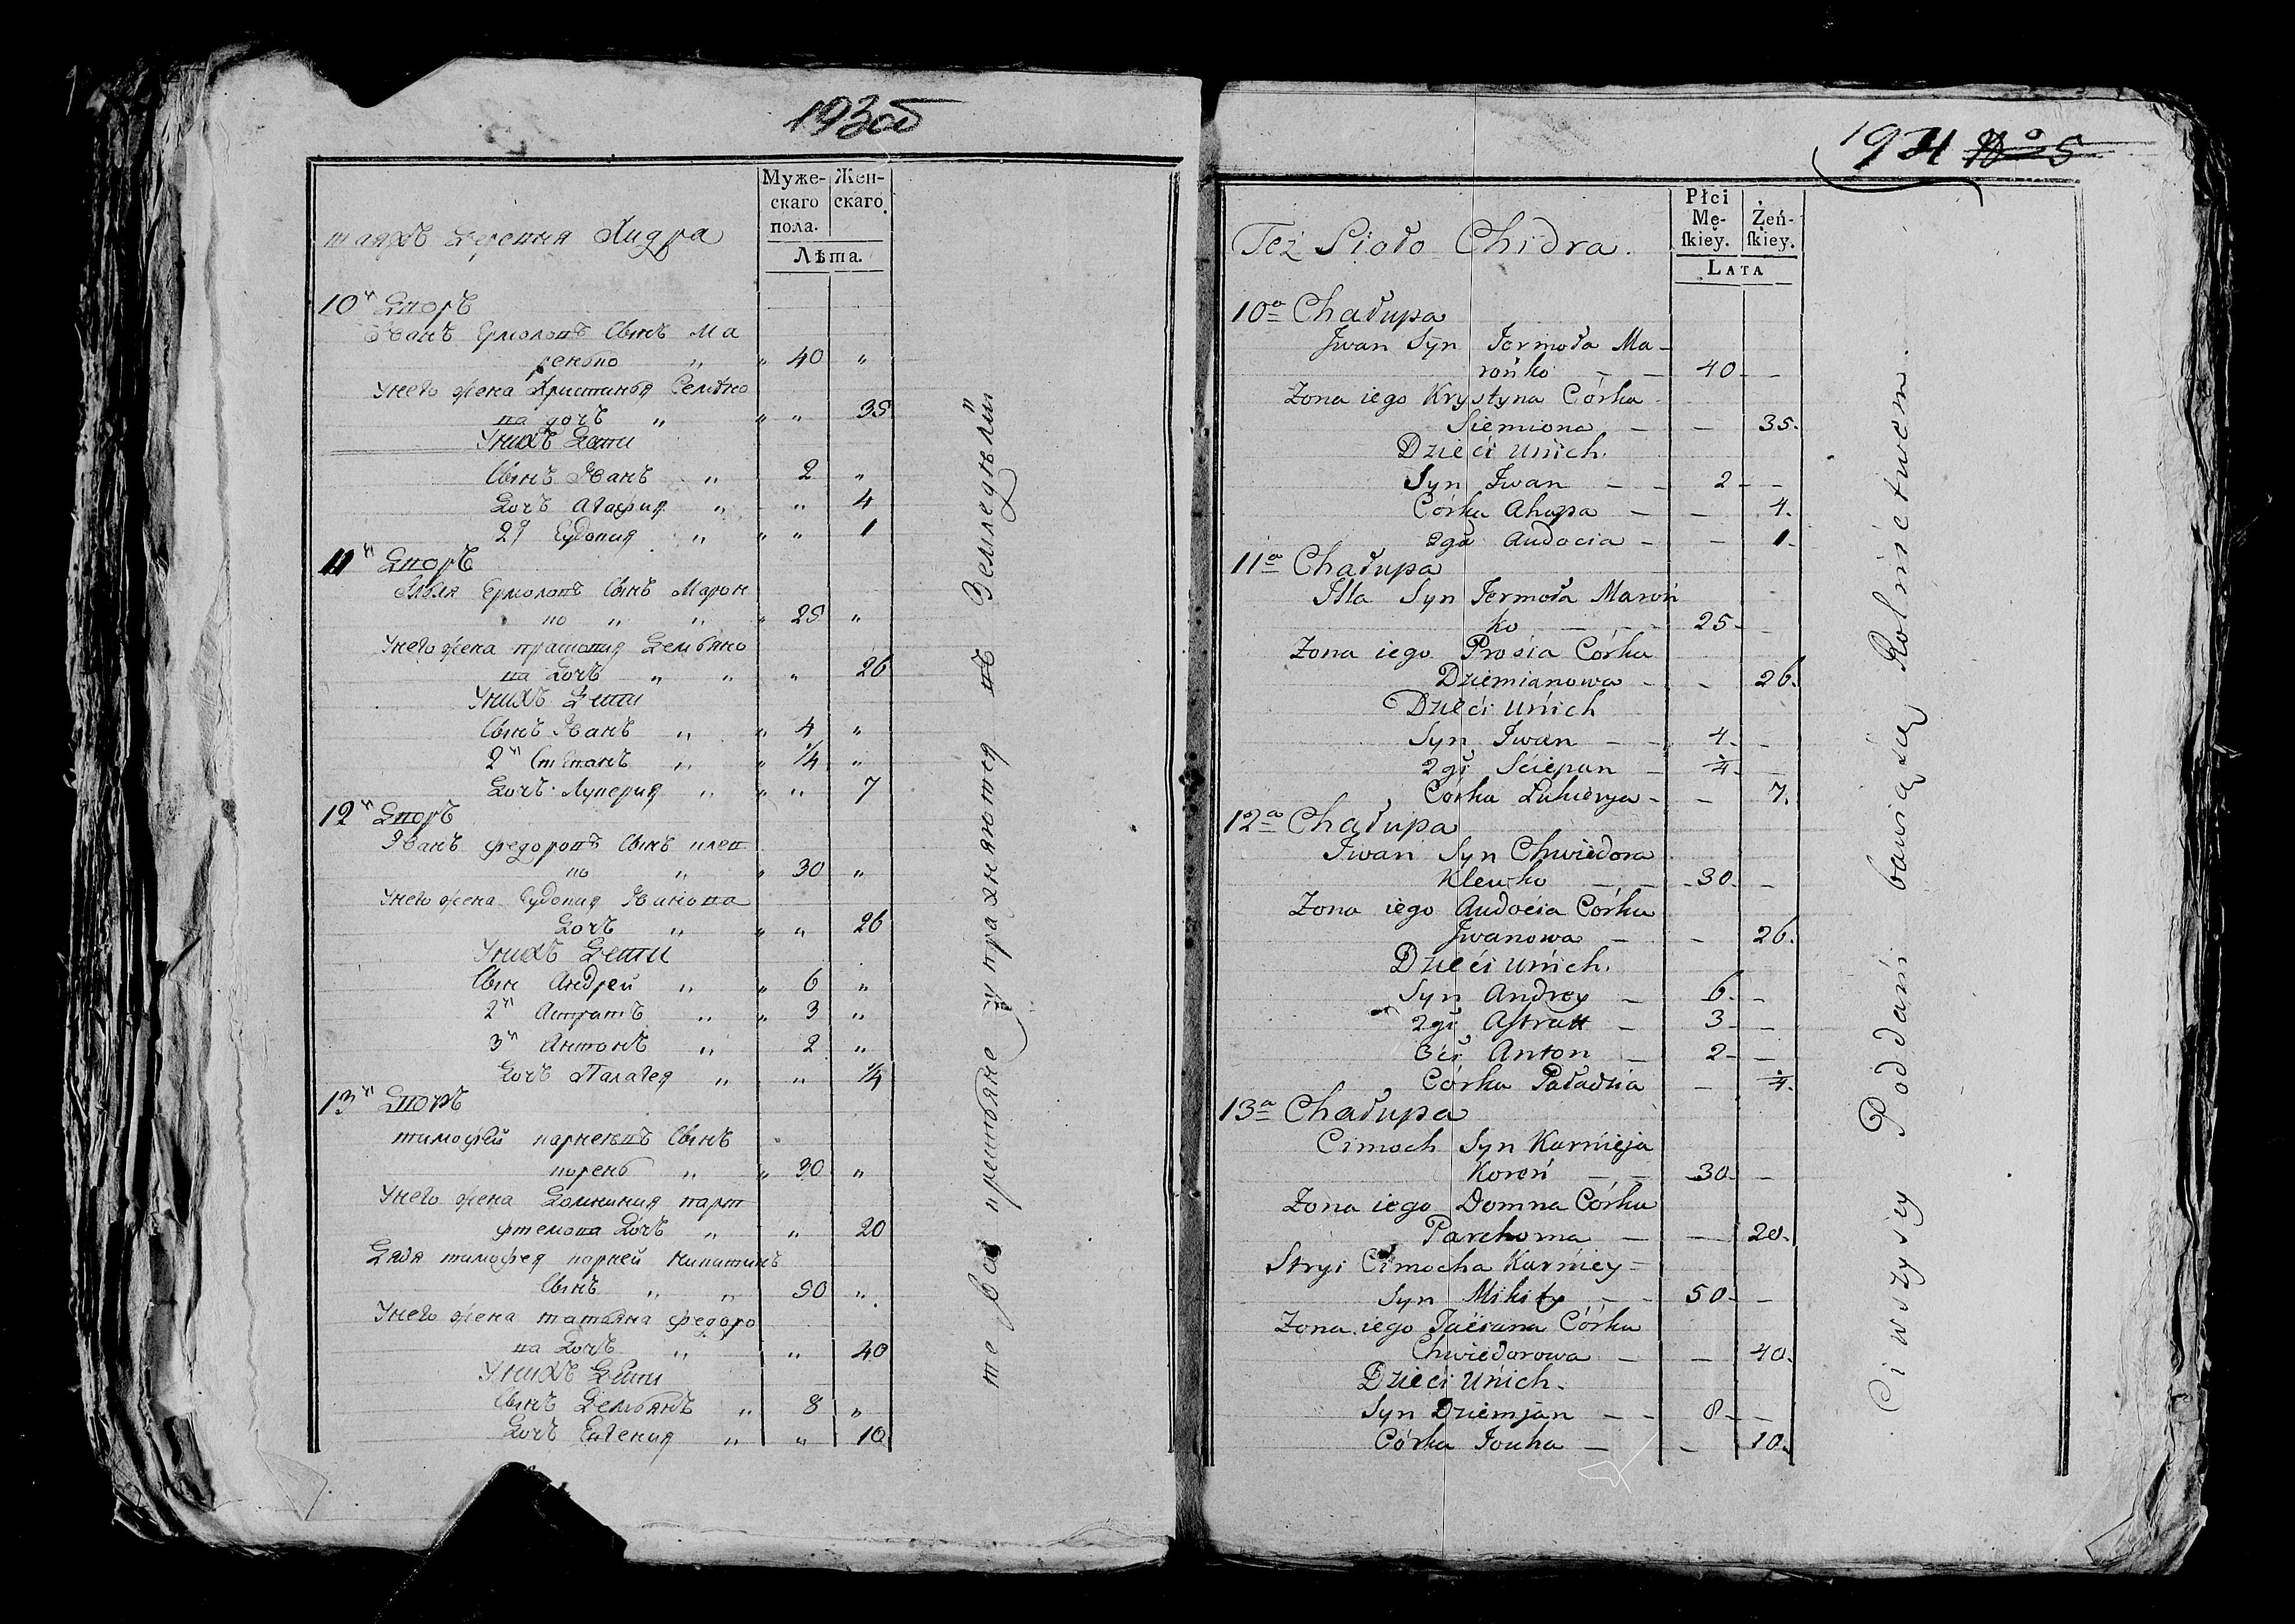 193об
Муже-
скаго
пола.
Жен-
скаго
Лѣта.
таяжъ Деревня Хидра
10й Дворъ
Иванъ Ермоловъ Сынъ Ма
ренько „ „ 40 „
Унего жена Христинья Семіоно
ва дочь „ „ „ 35
Унихъ Дети
Сынъ Иванъ „ 2 „
Дочь Агафия „ „ 4
2я Еудокия „ „ „ 1
11й Дворъ
Илья Ермоловъ Сынъ Марон
ко „ „ „ 25 „
Унего жена Прасковия Демьяно
ва Дочь „ „ „ 26
Унихъ Дети
Сынъ Иванъ „ „ 4 „
2й Степанъ „ „ 1/4 „
Дочь Лукерия „ „ „ 7
12й Дворъ
Иванъ федоровъ Сынъ клев
ко „ „ 30 „
Унего жена Еудокия Иванова
Дочь „ „ „ 26
Унихъ Дети
Сын Андрей „ „ 6 „
2й Астратъ „ „ 3 „
3й Антонъ „ 2 „
Дочь Палагея „ „ 1/4
13й Дворъ
тимофей карнеевъ Сынъ
корень „ „ 30 „
Унего жена Домникия парт
фтемова Дочь „ „ 20
Дядя тимофея карней Никитинъ
Сынъ „ „ 50 „
Унего жена татьяна федоро
ва Дочь „ „ 40
Унихъ Дети
Сынъ Демьянъ „ 8 „
Дочь Евгения „ „ 10
те Все крестьяне упражняются въ Земледѣлій
1931 No 5
Płci
Mę-
skiey.
Żeń-
skiey.
LATA
Też Sioło Chidra.
10a Chałupa
Jwan Syn Jermoła Ma-
rońko – – 40 – –
Zona iego Krystyna Córka
Siemiona – – 35.
Dzieći Unich.
Syn Jwan – – 2 – –
Córka Ahapa – – 4.
2ga Audocia – – 1 –
11a Chałupa
Illa Syn Jermoła Maroń
ko – – – 25 – –
Zona iego Prosia Córka
Dziemianowa – – 26.
Dzieći Unich
Syn Jwan – – 4 – –
2gi Sciepan – 1/4 – –
Córka Lukierya – – 7.
12a Chałupa
Jwan Syn Chwiedora
Klewko – – 30 – –
Zona iego Audocia Córka
Jwanowa – – 26.
Dzieći Unich.
Syn Andrey – 6 – –
2gi Astratt – 3 – –
3ći Anton – 2 – –
Córka Paładzia – 1/4.
13a Chałupa
Cimoch Syn Karnieja
Koreń – – 30 – –
Zona iego Domna Córka
Parchoma – – 20.
Stryi Cimocha Karniey –
Syn Mikity – – 50 – –
Zona iego Taćiana Córka
Chwiedorowa – – 40.
Dzieci Unich.
Syn Dziemjan – – 8 – –
Córka Jouha – – 10.
Ci wszyscy Poddani bawią się Rolnictwem.